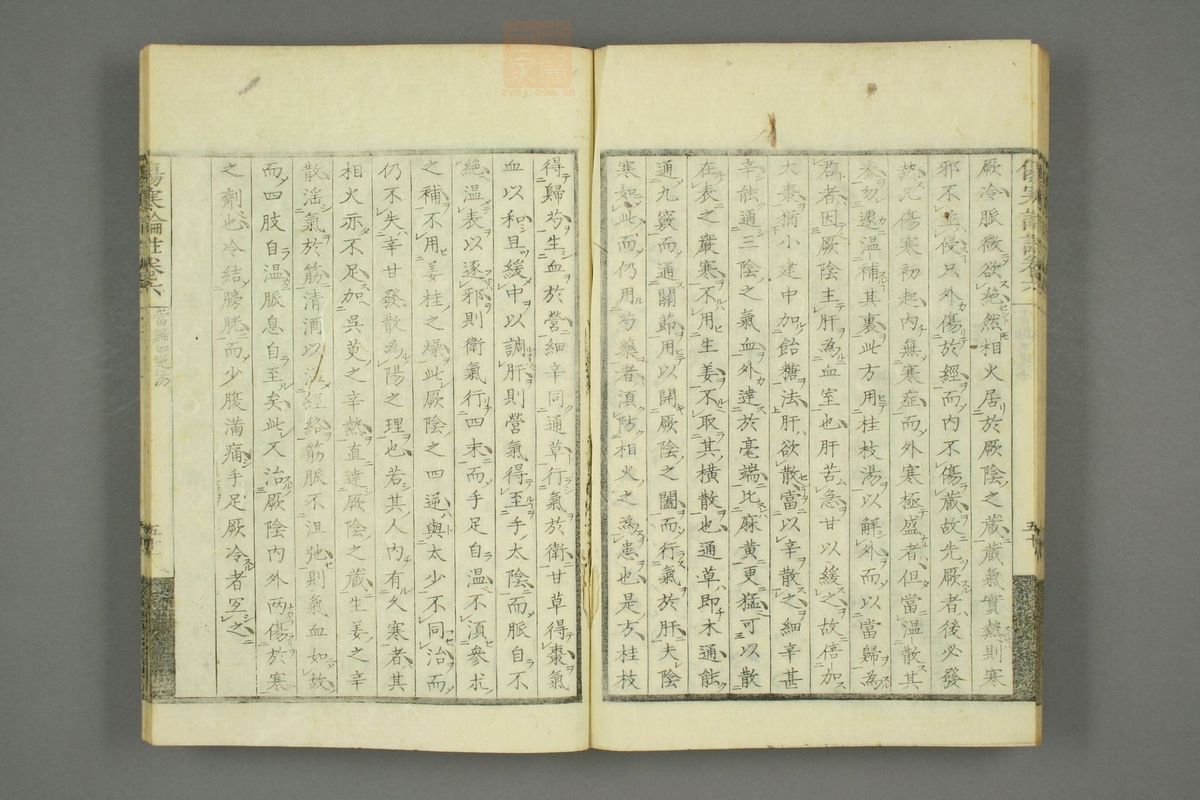 厥冷脈微欲絕然相火居於厥陰之蔵蔵氣實熱則寒
邪不能侵只外傷於經而內不傷蔵故先厥者後必發
熱凡傷寒初起內無寒症而外寒極盛者但當溫散其
表勿遽溫補其裏此方用桂枝湯以解外而以當歸為
君者因厥陰主肝為血室也肝苦急甘以緩之故倍加
大棗猶小建中加飴糖法肝欲散當以辛散之細辛甚
辛能通三陰之氣血外達於毫端比麻黃更猛可以散
在表之嚴寒不用生姜不取其橫散也通草即木通能
通九竅而通關節用以開厥陰之闔而行氣於肝夫陰
寒如此而仍用芍藥者湏防相火之為患也是方桂枝
得歸芍生血於營細辛同通草行氣於衛甘草得棗氣
血以和且緩中以調肝則營氣得至手太陰而脈自不
絕溫表以逐邪則衛氣行四末而手足自溫不湏參朮
之補不用姜桂之燥此厥陰之四逆與太少不同治而
仍不失辛甘發散為陽之理也若其人內有久寒者其
相火亦不足加吳茰之辛散直達厥陰之蔵生姜之辛
散淫氣於筋清酒以溫經絡筋脈不沮弛則氣血如故
而四肢自溫脈息自至矣此又治厥陰內外兩傷於寒
之劑也冷結膀胱而少腹滿痛手足厥冷者宜之
傷寒論註卷六
當歸四逆湯
zysj.com.cn